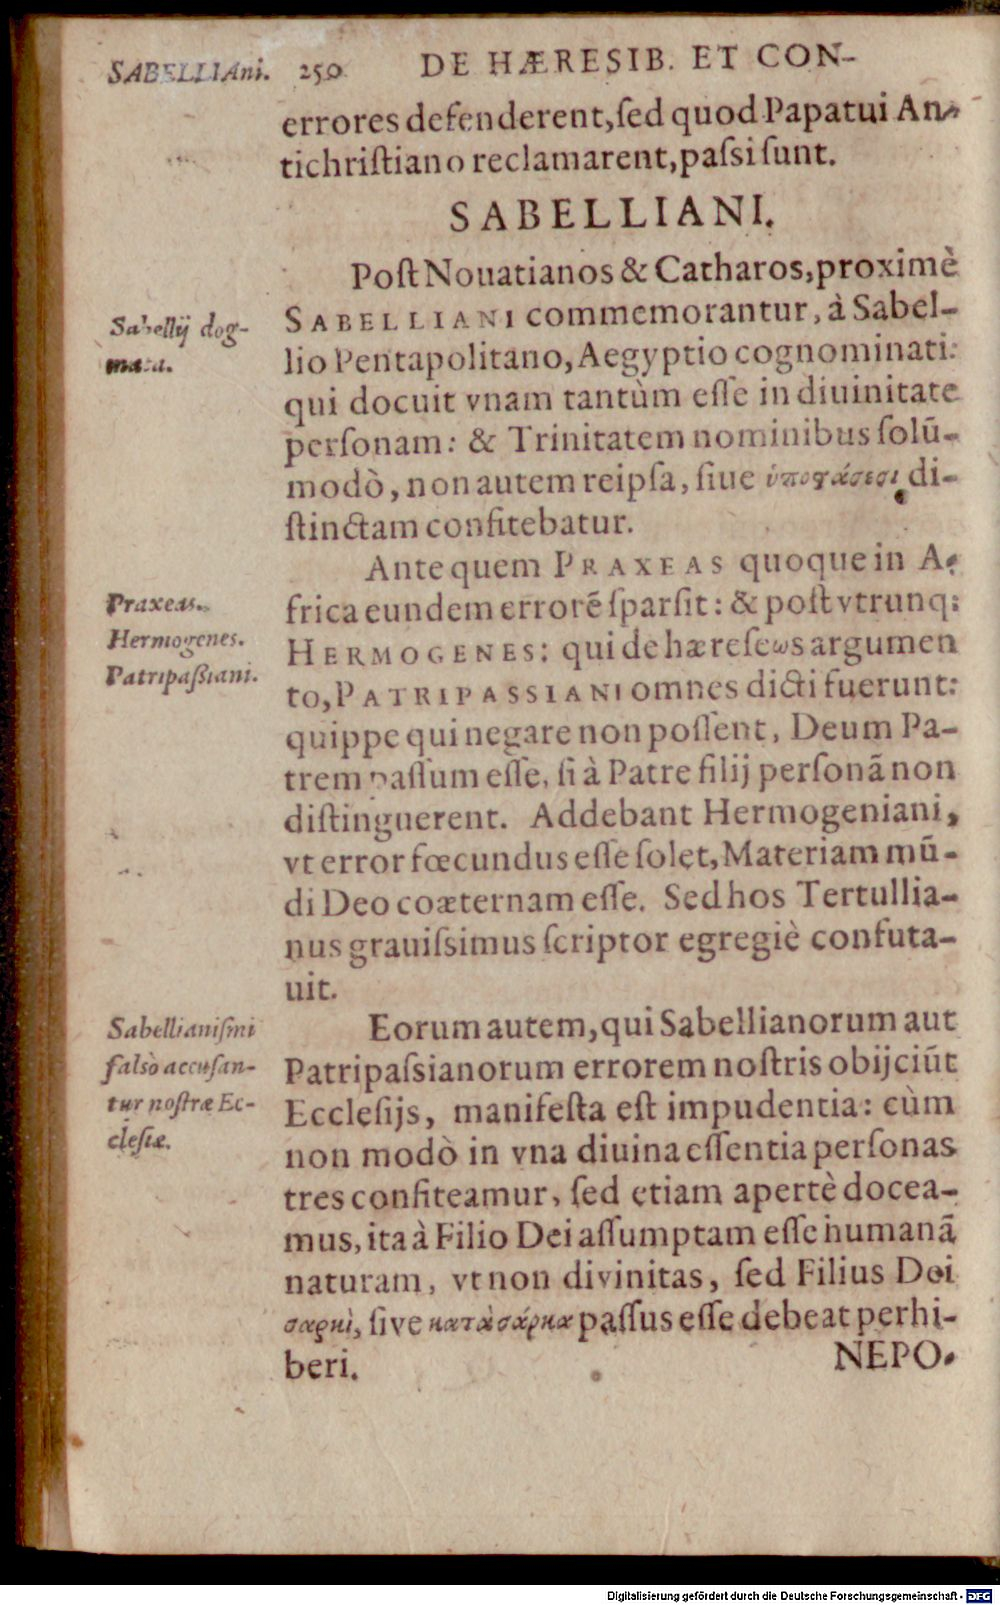 SABELLIAni. 250 DE HÆRESIB. ET CON-
errores defenderent, ſed quod Papatui An-
tichriſtiano reclamarent, paſsi ſunt.
SABELLIANI.
Poſt Nouatianos & Catharos, proximè
SABELLIANI commemorantur, à Sabel-
lio Pentapolitano, Aegyptio cognominati:
qui docuit vnam tantùm eſſe in diuinitate
perſonam: & Trinitatem nominibus ſolū-
modò, non autem reipſa, ſiue ὑποϛάσεσι, di-
ſtinctam confitebatur.
Sabellij dog-
mata.
Ante quem PRAXEAS quoque in A-
frica eundem errorē ſparſit: & poſt vtrunq;
HERMOGENES: qui de hæreſeωs argumen
to, PATRIPASSIANI omnes dicti fuerunt:
quippe qui negare non poſſent, Deum Pa-
trem paſſum eſſe, ſi à Patre filij perſonā non
diſtinguerent. Addebant Hermogeniani,
vt error fœcundus eſſe ſolet, Materiam mū-
di Deo coæternam eſſe. Sed hos Tertullia-
nus grauiſsimus ſcriptor egregiè confuta-
uit.
Praxeas.
Hermogenes.
Patripaßiani.
Eorum autem, qui Sabellianorum aut
Patripaſsianorum errorem noſtris obijciūt
Eccleſijs, manifeſta eſt impudentia: cùm
non modò in vna diuina eſſentia perſonas
tres confiteamur, ſed etiam apertè docea-
mus, ita à Filio Dei aſſumptam eſſe humanā
naturam, vt non divinitas, ſed Filius Dei
σαρκὶ, ſive κατὰ σάρκα paſſus eſſe debeat perhi-
beri.
Sabellianiſmi
falsò accuſan-
tur noſtræ Ec-
cleſiæ.
NEPO-
Digitalisierung gefördert durch die Deutsche Forschungsgemeinschaft - DFG